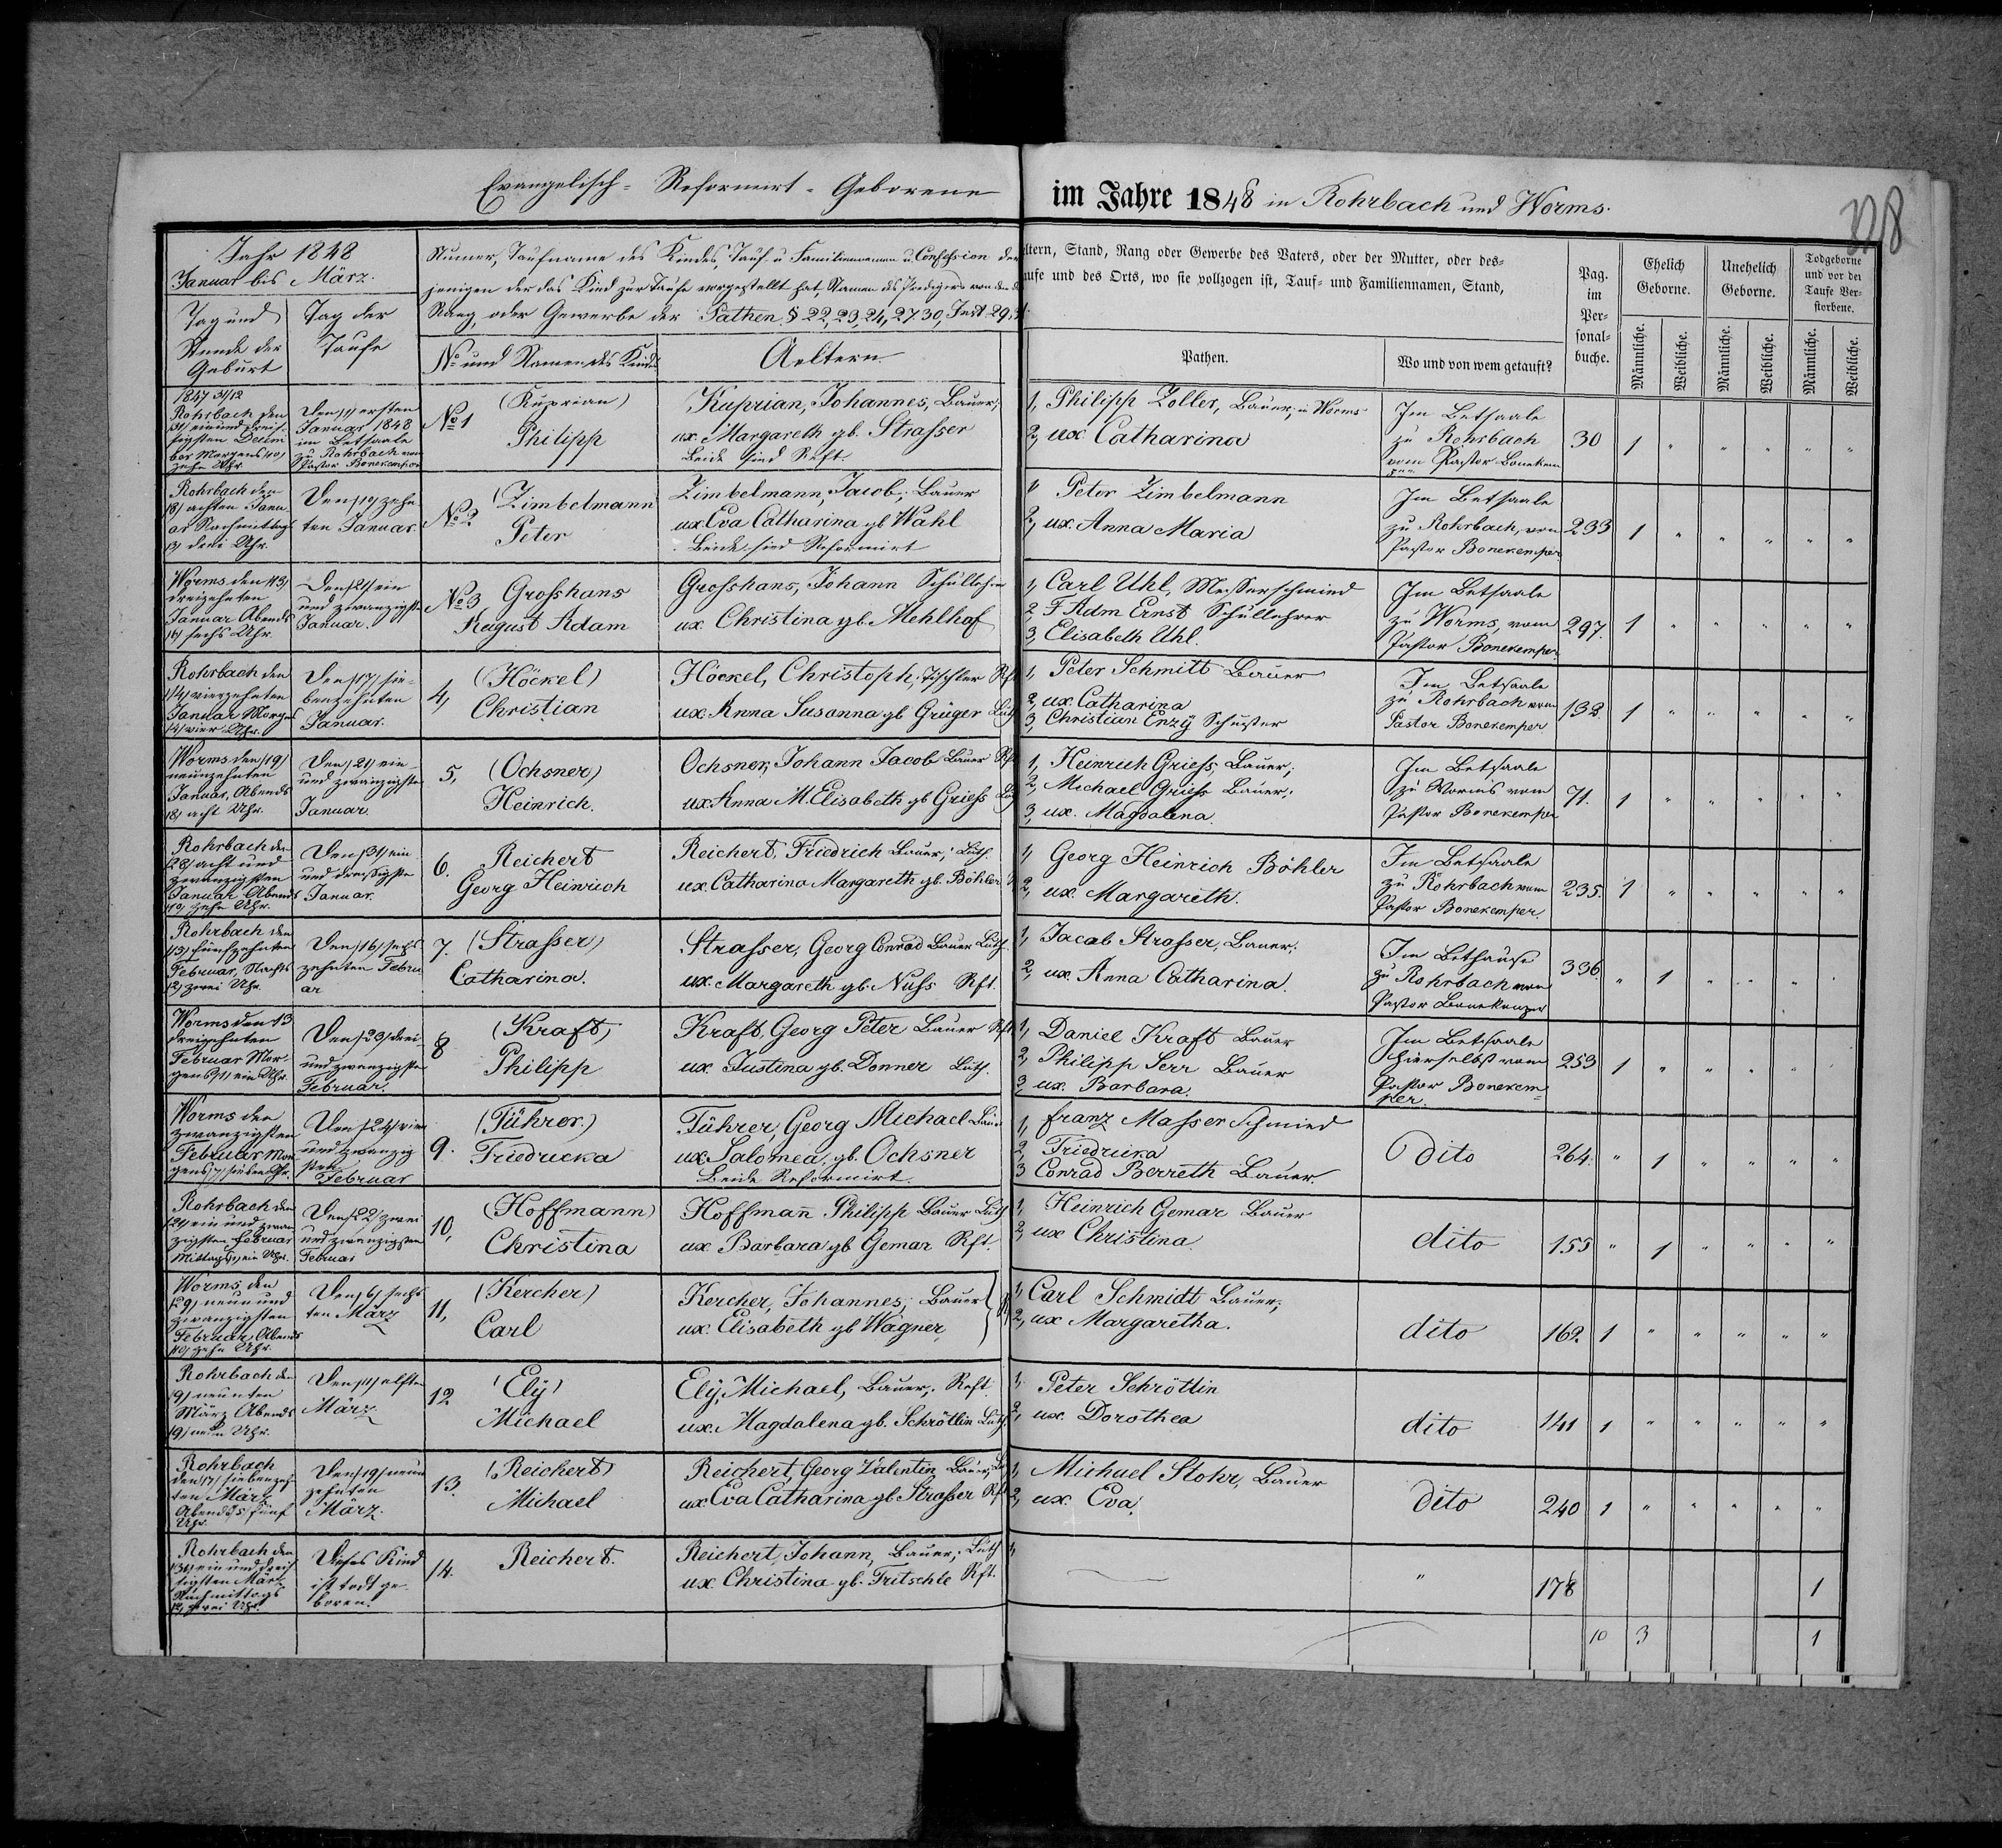 Evangelisch-Reformirt-Geborene im Jahre 1848 in Rohrbach und Worms.
328
Jahr 1848
Januar bis März.
Tag und Stunde der Geburt
Tag der Taufe
Numer, Taufname des Kindes, Tauf- u Familiennamen u. Confession der Aeltern, Stand, Rang oder Gewerbe des Vaters, oder der Mutter, oder des=
jenigen der das Kind zur Taufe vorgestellt hat, Namen des Predigers von dem die Taufe und des Orts, wo sie vollzogen ist, Tauf- und Familiennamen, Stand,
Rang, oder Gewerbe der Pathen. § 22, 23, 24, 27. 30, Inst 29.
No und Namen des Kindes
Aeltern
Pathen.
Wo und von wem getauft?
Pag. im Per= sonal= buche.
Ehelich Geborne.
Unehelich Geborne.
Todgeborne und vor der Taufe Ver= storbene.
Männliche.
Weibliche.
Männliche.
Weibliche.
Männliche.
Weibliche.
1847 31/12
Rohrbach den
(31) einund dreis-
sigsten Decem
ber Morgens (10)
zehn Uhr
Den (1) ersten
Januar 1848
im Betsaale
zu Rohrbach von
Pastor Bonekemper
No 1
(Kuprian)
Philipp
Kuprian, Johannes, Bauer;
ux. Margareth gb. Strasser
Beide sind Reft.
1, Philipp Zoller, Bauer; in Worms
2, ux Catharina
Im Betsaale
zu Rohrbach
vom Pastor Bonekem
per
30
1 " " " " "
Rohrbach den
(8) achten Janu
ar Nachmittags
(3) drei Uhr.
Den (10) zehn
ten Januar.
No 2
(Zimbelmann
Peter
Zimbelmann, Jacob; Bauer
ux Eva Catharina gb Wahl
Beide sind Reformirt
1, Peter Zimbelmann
2, ux. Anna Maria
Im Betsaale
zu Rohrbach, von
Pastor Bonekemper
233
1 " " " " "
Worms den (13)
dreizehnten
Januar Abends
(6) sechs Uhr.
Den (21) ein
und zwanzigsten
Januar.
No 3
Grosshans
August Adam
Grosshans, Johann Schullehrer
ux. Christina gb. Mehlhaf
1, Carl Uhl, Messerschmied
2, F Adm Ernst Schullehrer
3, Elisabeth Uhl.
Im Betsaale
zu Worms, vom
Pastor Bonekemper.
297.
1 " " " " "
Rohrbach den
(14) vierzehnten
Januar Morgens
(4) vier Uhr.
Den (17) sie-
benzehnten
Januar.
4,
(Höckel)
Christian
Höckel, Christoph, Tischler Rft
ux. Anna Susanna gb Grüger Luth
1, Peter Schmitt Bauer
2, ux. Catharina
3, Christian Enzÿ Schuster
Im Betsaale
zu Rohrbach vom
Pastor Bonekemper
132.
1 " " " " "
Worms den (19)
neunzehnten
Januar, Abends
(8) acht Uhr.
Den (21) ein-
und zwanzigsten
Januar.
5,
(Ochsner)
Heinrich.
Ochsner, Johann Jacob Bauer Rft
ux Anna M. Elisabeth gb Griess Luth
1, Heinrich Griess, Bauer;
2, Michael Griess Bauer;
3, ux. Magdalena.
Im Betsaale
zu Worms vom
Pastor Bonekemper
71.
1 " " " " "
Rohrbach den
(28) acht und
zwanzigsten
Januar Abends
(10) zehn Uhr.
Den (31) ein
und dreissigsten
Januar.
6.
Reichert
Georg Heinrich
Reichert, Friedrich Bauer; Luth.
ux Catharina Margareth gb. Böhler
1, Georg Heinrich Böhler
2, ux. Margareth.
Im Betsaale
zu Rohrbach vom
Pastor Bonekemper.
235.
1 " " " " "
Rohrbach den
(15) fünfzehnten
Februar, Nachts
(2) zwei Uhr.
Den (16) sechs
zehnten Febru
ar
7.
(Strasser)
Catharina.
Strasser, Georg Conrad Bauer Luth.
ux. Margareth gb. Nuss Rft.
1, Jacob Strasser, Bauer;
2, ux. Anna Catharina.
Im Bethause
zu Rohrbach von
Pastor Bonekemper
336.
" 1 " " "
Worms den 13
dreizehnten
Februar Mor-
gens (1) ein Uhr.
Den (23) drei
und zwanzigsten
Februar.
8
(Kraft)
Philipp
Kraft, Georg Peter Bauer Rft
ux. Justina gb. Donner Luth.
1, Daniel Kraft Bauer
2, Philipp Serr Bauer
3, ux. Barbara.
Im Betsaale
Hierselbst vom
Pastor Bonekem=
per.
253
1 " " " " "
Worms den
zwanzigsten
Februar Mor
gens (7) sieben Uhr.
Den (24) vier
und zwanzig
sten
Februar
9.
(Führer.)
Friedricka
Führer, Georg Michael Bauer
ux. Salomea, gb. Ochsner
Beide Reformirt.
1, Franz Masser Schmied
2, Friedricka
3 Conrad Berreth Bauer
dito
264.
" 1 " " " "
Rohrbach den
(21) ein und zwan
zigsten Februar
Mittags (1) ein Uhr.
Den (22) zwei
und zwanzigsten
Februar
10,
(Hoffmann)
Christina
Hoffmañ Philipp Bauer Luth
ux Barbara gb Gemar Rft.
1, Heinrich Gemar Bauer
2, ux Christina
dito
155
" 1 " " " "
Worms, den
(29) neun und
zwanzigsten
Februar, Abends
(10) zehn Uhr.
Den (6) sechs
ten März
11,
(Kercher)
Carl
Kercher, Johannes; Bauer
ux. Elisabeth gb Wagner
1, Carl Schmidt Bauer;
2, ux Margaretha.
dito
162.
1 " " " " "
Rohrbach den
(9) neunten
März Abends
(9) neun Uhr.
Den (11) elften
März
12
(Elÿ)
Michael
Elÿ, Michael, Bauer; Reft.
ux. Magdalena gb. Schrötlin Luth.
1, Peter Schröttin
2, ux. Dorothea
dito
141
1 " " " " "
Rohrbach
den (17) siebenzehn
ten März
Abends (5) fünf
Uhr.
Den (19) neun
zehnten
März.
13.
(Reichert)
Michael
Reichert, Georg Valentin, Bauer;
ux Eva Catharina gb Strasser Rft
1, Michael Stohr, Bauer
2, ux. Eva.
dito
240
1 " " " " "
Rohrbach den
(31) ein und dreis
sigsten März
Nachmittags
(2) zwei Uhr.
Dieses Kind
ist todt ge-
boren.
14.
Reichert.
Reichert, Johann, Bauer; Luth
ux Christina gb. Fritschle Rft.
1,
"
178
1
10 3 1